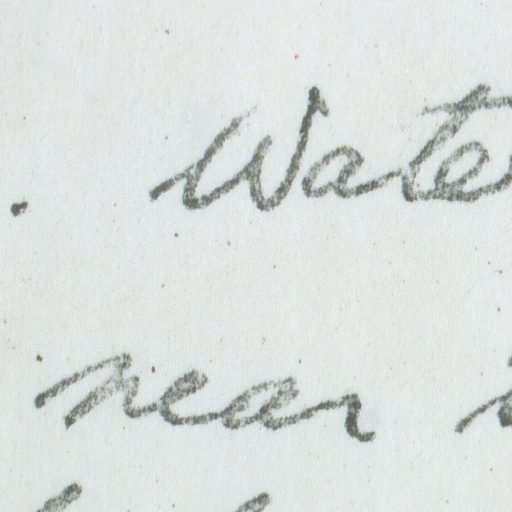 . Wate
near